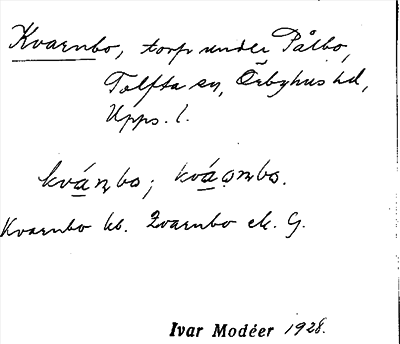 Kvarnbo, torp under Pålbo,
Tolfta sn, Örbyhus hd,
Upps. l.
kvá̱ṇbo; kvá̱
Kvarnbo kb. Qvarnbo ek. G.
Ivar Modéer 1928.